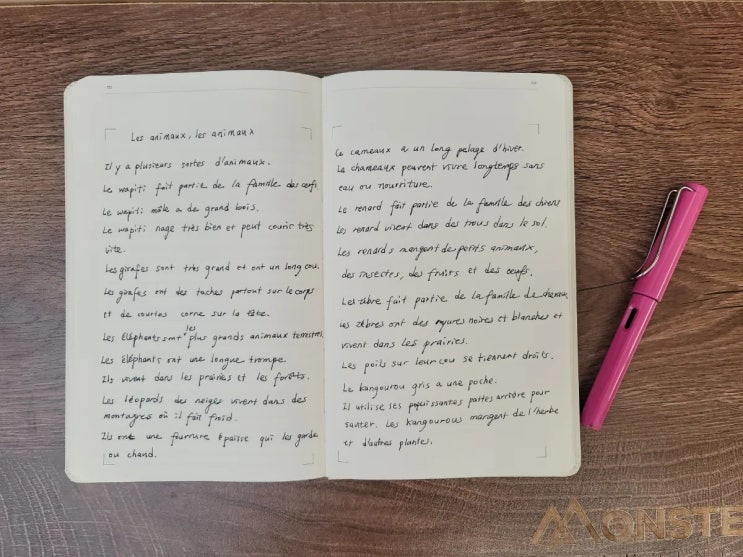 Les animaux, les animaux
Il y a plusieurs sortes d'animaux.
Le wapiti fait partie de la famille des cerfs.
Le wapiti mâle a de grand bois.
Le wapiti nage très bien et peut courir très
vite.
Les girafes sont très grand et ont un long cou.
Les girafes ont des taches partout sur le corps
et de courtes corne sur la tête.
Les Éléphants sont les plus grands animaux terrestres.
Les Éléphants ont une longue trompe.
Ils vivent dans les prairies et les forêts.
Les léopards des neiges vivent dans des
montagnes où il fait froid.
Ils ont une fourrure épaisse qui les garde
au chaud.
Ce cameaux a un long pelage d'hiver.
Le chameaux peurent vivre longtemps sans
eau ou nourriture.
Le renard fait partie de la famille des chiens
Les renard vivent dans des trous dans le sol.
Les renards mangent de petits animaux,
des insectes, des fruits et des œufs.
Les zèbre fait partie de la famille de chevaux
Les zèbres ont des rayures noires et blanches et
vivent dans les prairies.
Les poils sur leur cou se tiennent droits.
Le kangourou gris a une poche.
Il utilise ses puissantes pattes arrière pour
sauter. Les kangourous mangent de l'herbe
et d'autres plantes.
MONSTE